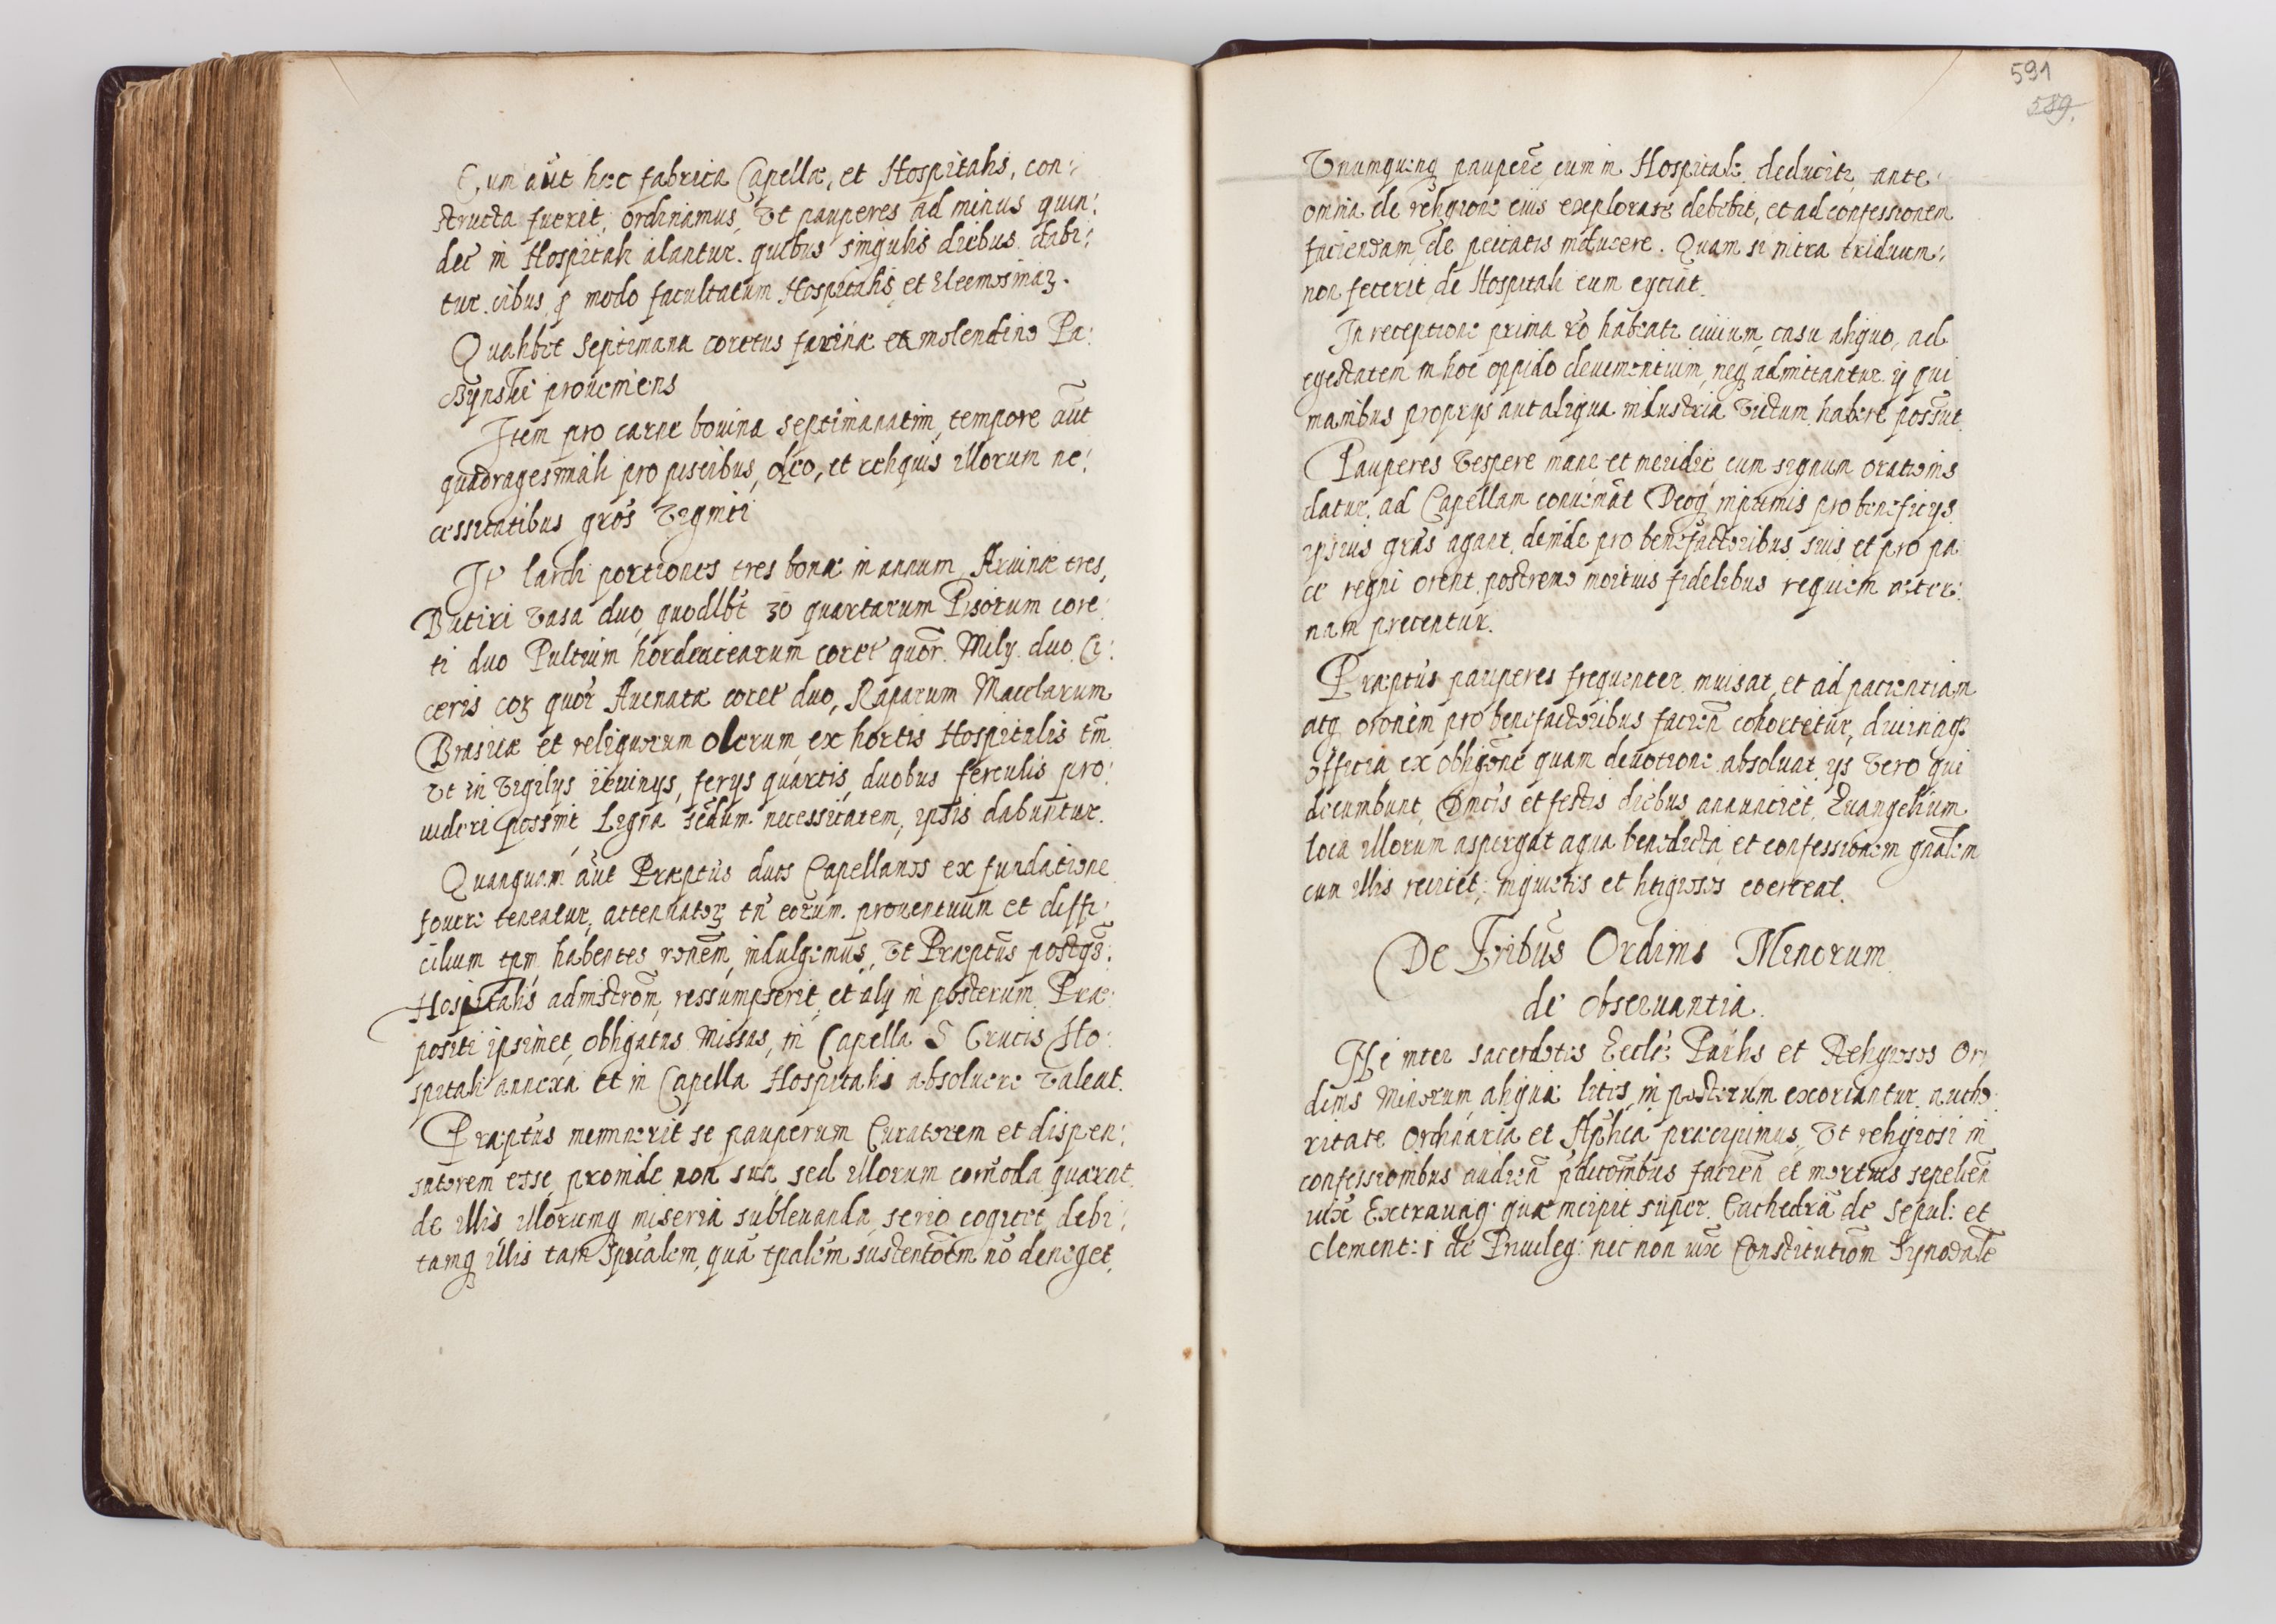 Cum aūt hæc fabrica Capellæ, et Hospitalis, con:
structa fuerit, ordinamus, Vt pauperes ad minus quin:
dec in Hospitali alantur. quibus singulis diebus dabi:
tur cibus, p modo facultatum Hospitalis et Eleemosinaꝝ.
Qualibet Septimana coretus farinæ ex molendino Pa:
proueniens
Item pro carne bouina septimanatim, tempore aūt
quadragesimali pro piscibus, oleo, et reliquis illorum ne:
cessitatibus gros Viginti
It lardi portiones tres bonæ in annum, Aruinæ tres,
Butiri Vasa duo, quodlbt 30 quartarum Pisorum core:
ti duo Pultium hordeacearum coret quor. Milij duo Ci:
ceris coꝝ quor Auenatæ coret duo, Raparum Macelarum
Brasicæ et reliquorum olerum ex hortis Hospitalis tm̄
Vt in Vigilijs ieiunijs, ferijs quartis, duobus ferculis pro:
uideri possint Ligna secdum necessitatem, ipsis dabuntur.
Quanquam aūt Præptus duos Capellanos ex fundatione
fouere teneatur, attenuatoꝝ tn eorum prouentuum et diffi:
cilium tpm habentes ronem, indulgemus, Vt Præptus postqȝ
Hospitalis admistrom, ressumpserit, et alij in posterum Præ:
positi ipsimet, obligatas Missas, in Capella S Crucis Ho:
spitali annexa et in Capella Hospitalis absoluere Valeat.
Præptus meminerit se pauperum Curatorem et dispen:
satorem esse, proinde non sua sed illorum comoda quærat
de illis illorumq miseria subleuanda, serio cogitet, debi:
tamq illis tam Spūalem, quā tpalem sustentoem nō deneget.
591
589.
Vnumquenq pauperē cum in Hospitale deducitr, ante
omnia de religione eius explorare debebit, et ad confessionem
faciendam, de peccatis inducere. Quam si intra triduum:
non fecerit, de Hospitali eum eyciat.
In receptione prima ro habeatr ciuium, casu aliquo, ad
egestatem in hoc oppido deuenientium, neq admittantur ij qui
manibus proprijs aut aliqua industria Victum habere possūt.
Pauperes Vespere mane et meridie cum signum orationis
datur, ad Capellam conueniāt Deoq inprimis pro beneficijs
ipsius grās agant, deinde pro benefactoribus suis et pro pa:
ce regni orent, postremo mortuis fidelibus requiem æter:
nam precentur.
Præptus pauperes frequenter inuisat, et ad patientiam
atq oronem pro benefactoribus facien̄ cohortetur, diuinaqȝ
officia ex obligōne quam deuotione absoluat, ijs Vero qui
decumbunt, Dn̄cis et festis diebus annunciet, Euangelium
loca illorum aspergat aqua benedicta, et confessionem gn̄alem
cum illis recitet, inquietis et litigiosos coerceat.
De Fribus Ordinis Minorum
de obseruantia.
Ne inter sacerdotes Eccle Palis et Religiosos Or:
dinis Minorum aliquæ lites, in posterum exoriantur, autho:
ritate Ordinaria et Aplica præcipimus, Vt religiosi in
confessionibus audien̄ pdicōmbus facien̄ et mortuis sepelien̄
iuxē Extrauag: quæ incipit super Cathedrā de Sepul: et
Clement: 1 de Priuileg: nec non iux Constitutiom Synodalē